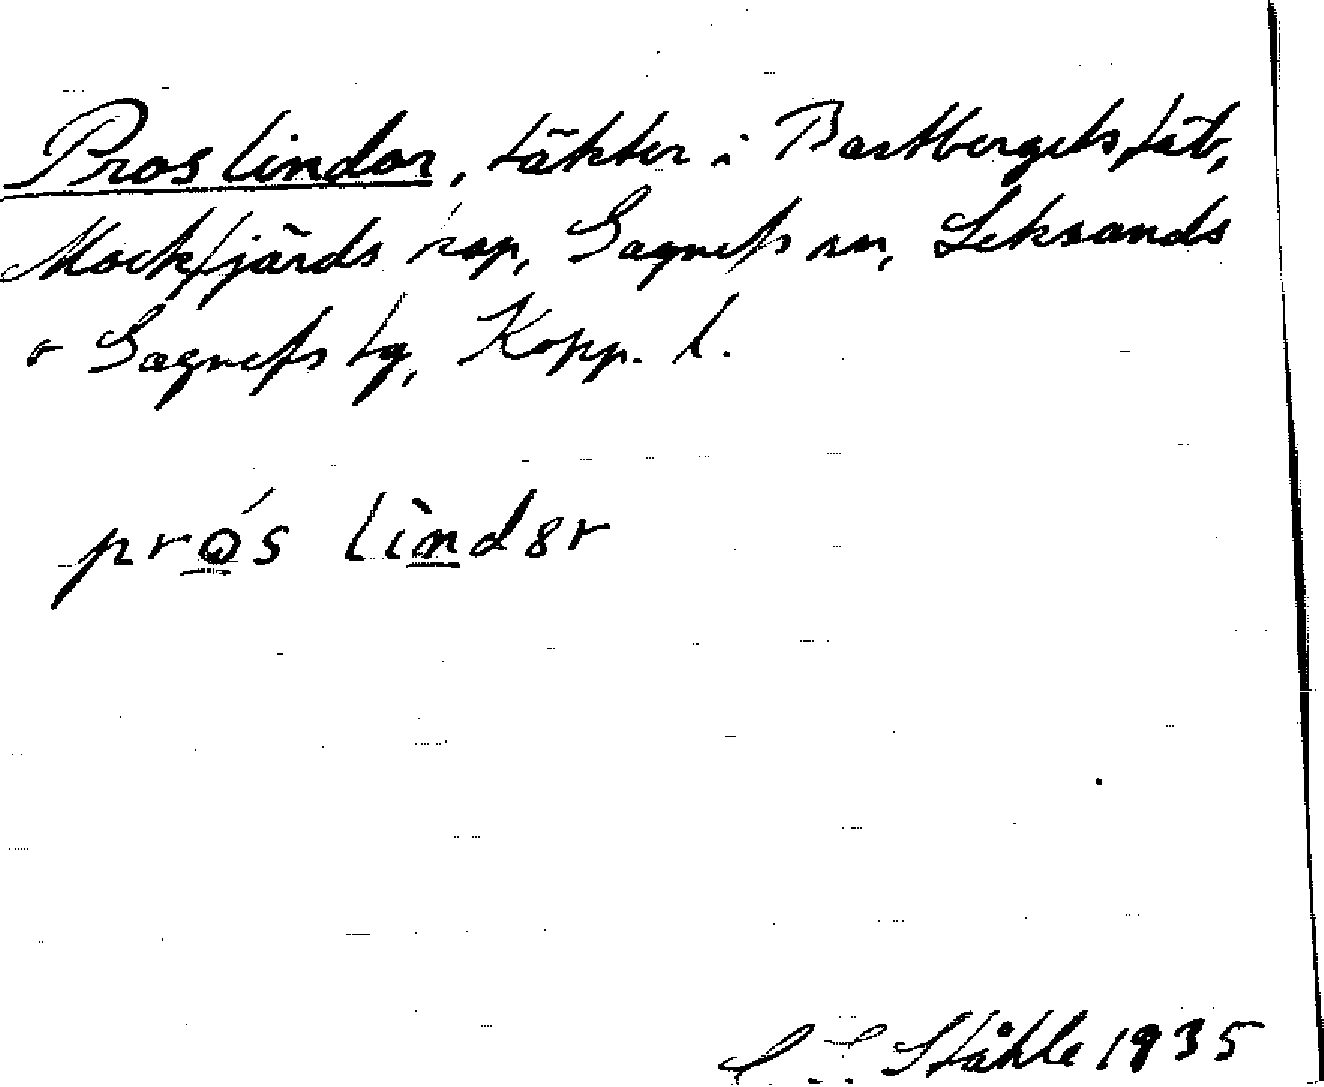 Pros lindor, täkter i Bastbergets fäb,
Mockfjärds kap, Gagnefs sn, Leksands
o Gagnefs tg, Kopp. l.
prós lìndər
C I Ståhle 1935